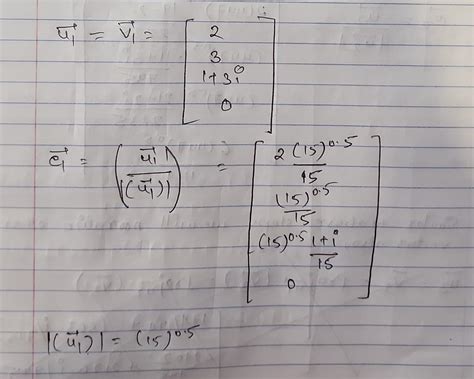 u₁⃗ = v₁⃗ = [ 2
3
1+3i
0 ]
e₁⃗ = ( u₁⃗ / |(u₁⃗)| ) = [ 2(15)^0.5 / 15
(15)^0.5 / 15
(15)^0.5 1+i / 15
0 ]
|(u₁⃗)| = (15)^0.5